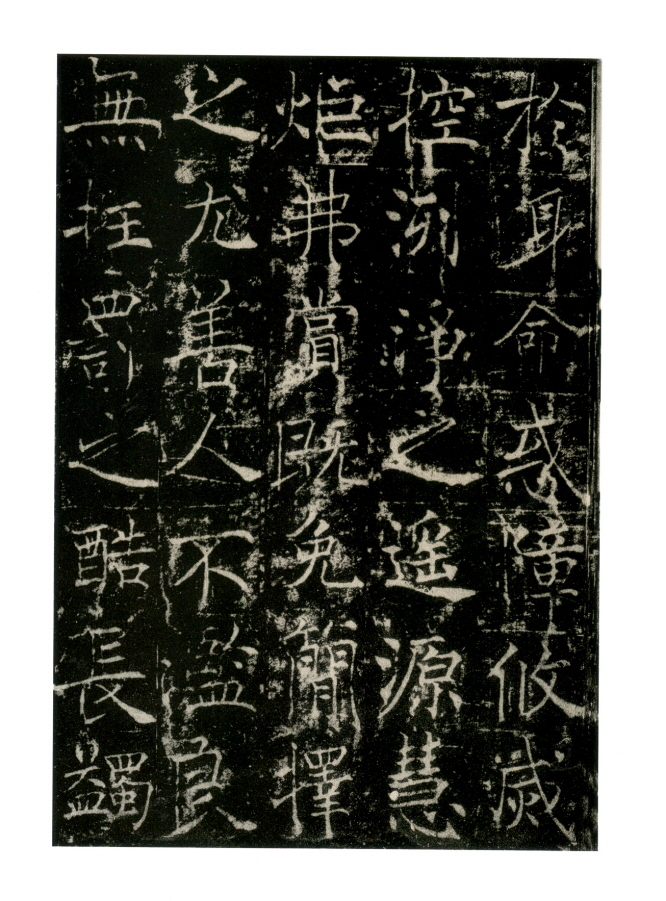 於身命惑障攸歲
控洌淨之遥源慧
炬弗賞既免簡擇
之尤善人不濫良
無抂罰之酷長蠲